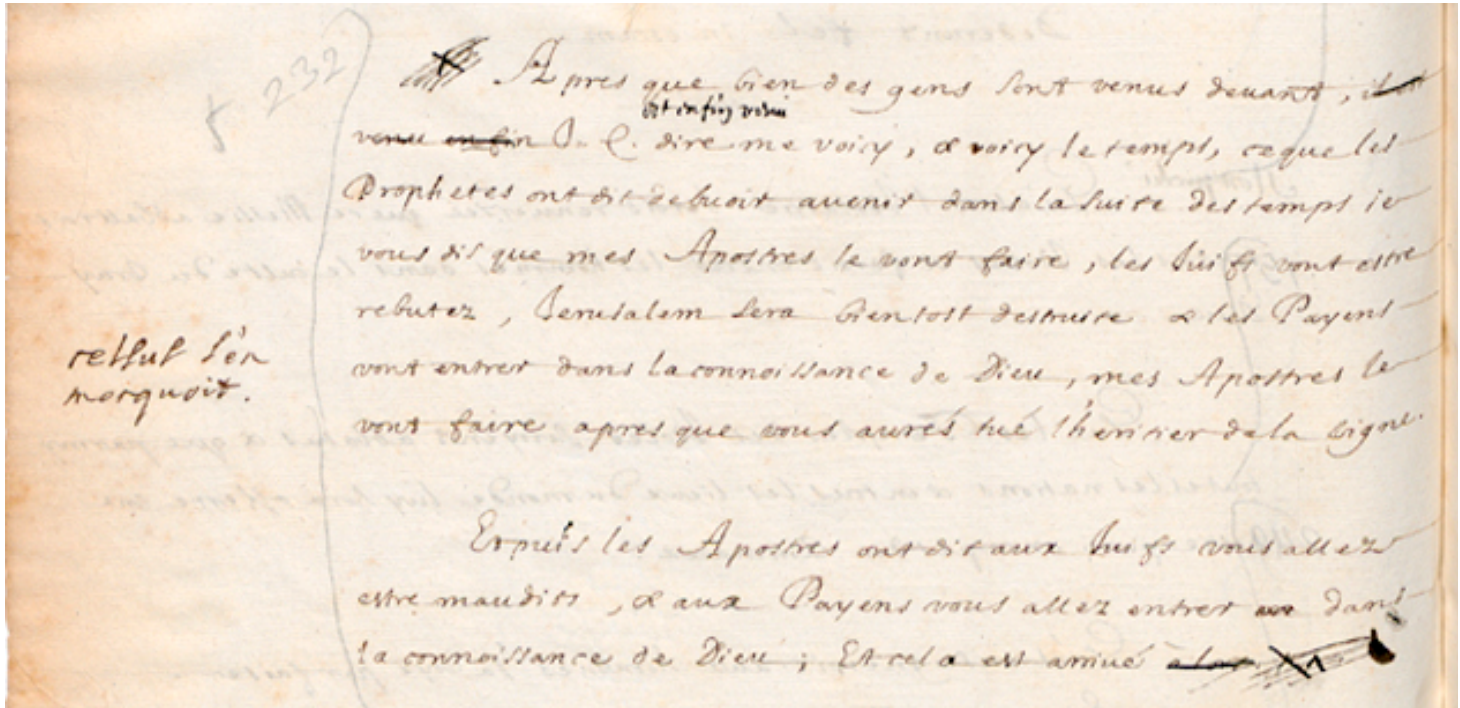 232
Apres que bien des gens sont venus devant, il est
est enfin venu
venu enfin J. C. dire me voicy, & voicy le temps, ce que les
Prophetes ont dit debuoir auenir dans la suite des temps ie
vous dis que mes Apostres le vont faire, les Juifs vont estre
rebutez, Jerusalem sera bientost destruite & les Payens
vont entrer dans la connoissance de Dieu, mes Apostres le
vont faire apres que vous aurés tué l'heritier de la vigne.
celsus s'en
mocquoit.
Et puis les Apostres ont dit aux Juifs vous allez
estre maudits, & aux Payens vous allez entrer dans
la connoissance de Dieu ; Et cela est arriué alors.